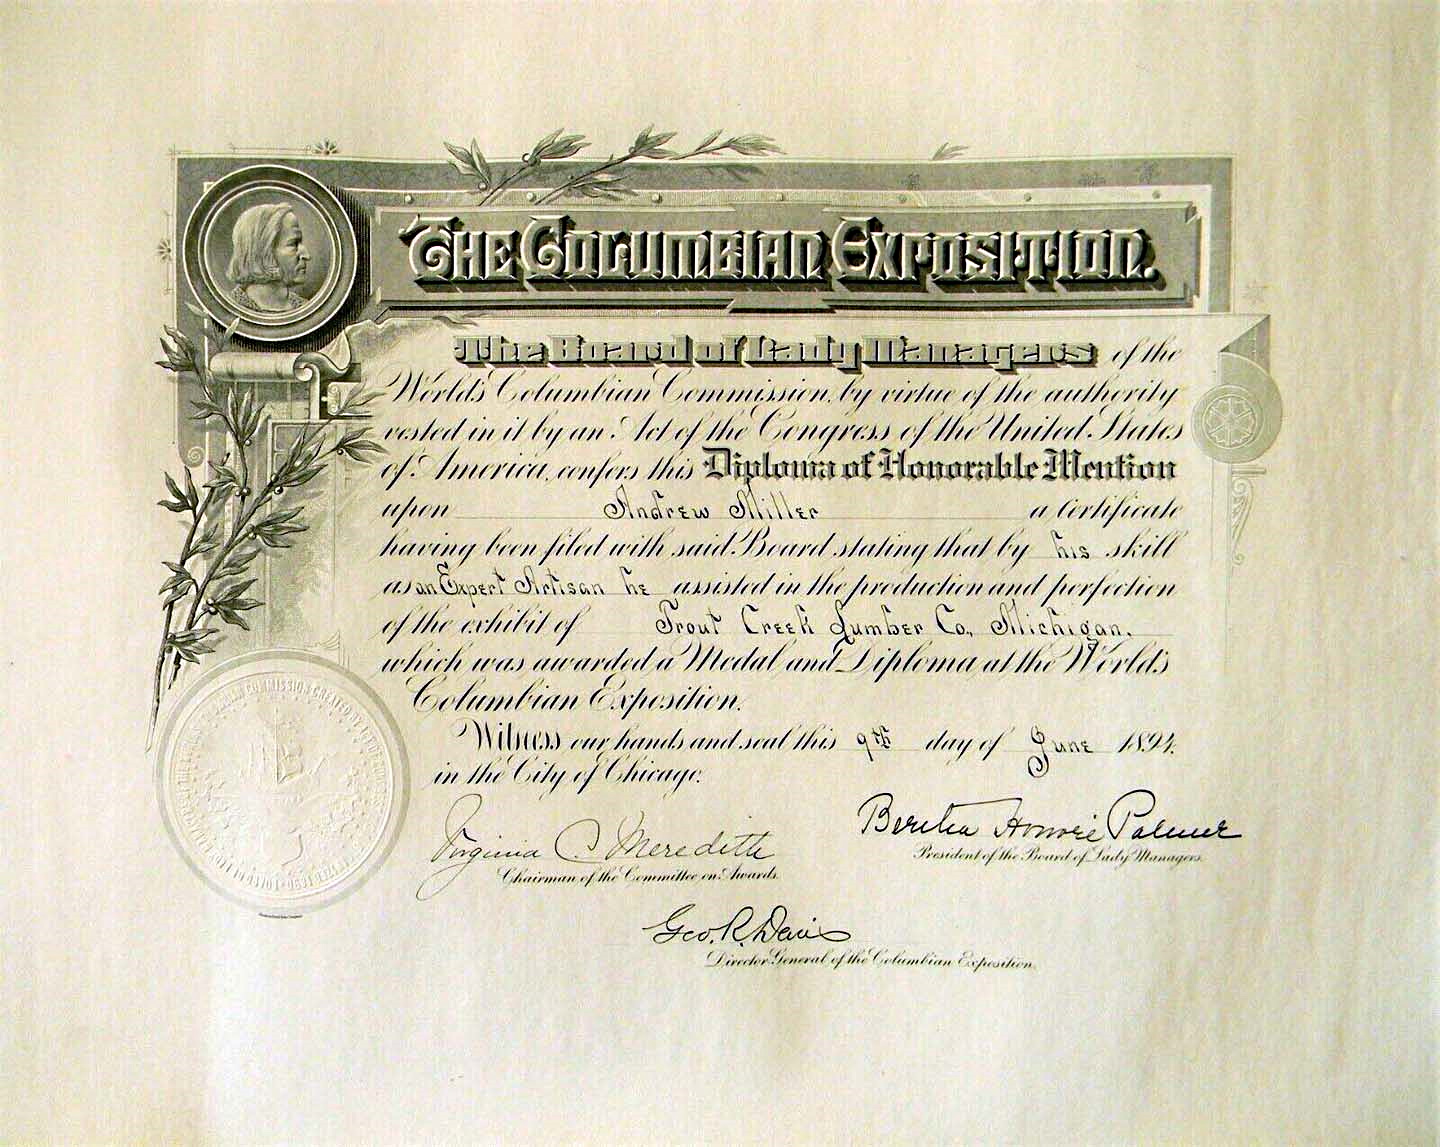 The Columbian Exposition.
The Board of Lady Managers of the
World's Columbian Commission, by virtue of the authority
vested in it by an Act of the Congress of the United States
of America, confers this Diploma of Honorable Mention
upon Andrew Miller a certificate
having been filed with said Board stating that by his skill
as an Expert Artisan he assisted in the production and perfection
of the exhibit of Trout Creek Lumber Co., Michigan.
which was awarded a Medal and Diploma at the World's
Columbian Exposition.
Witness our hands and seal this 9th day of June 1894.
in the City of Chicago.
Virginia C. Meredith
Chairman of the Committee on Awards.
Bertha Honoré Palmer
President of the Board of Lady Managers.
Geo. R. Davis
Director General of the Columbian Exposition.